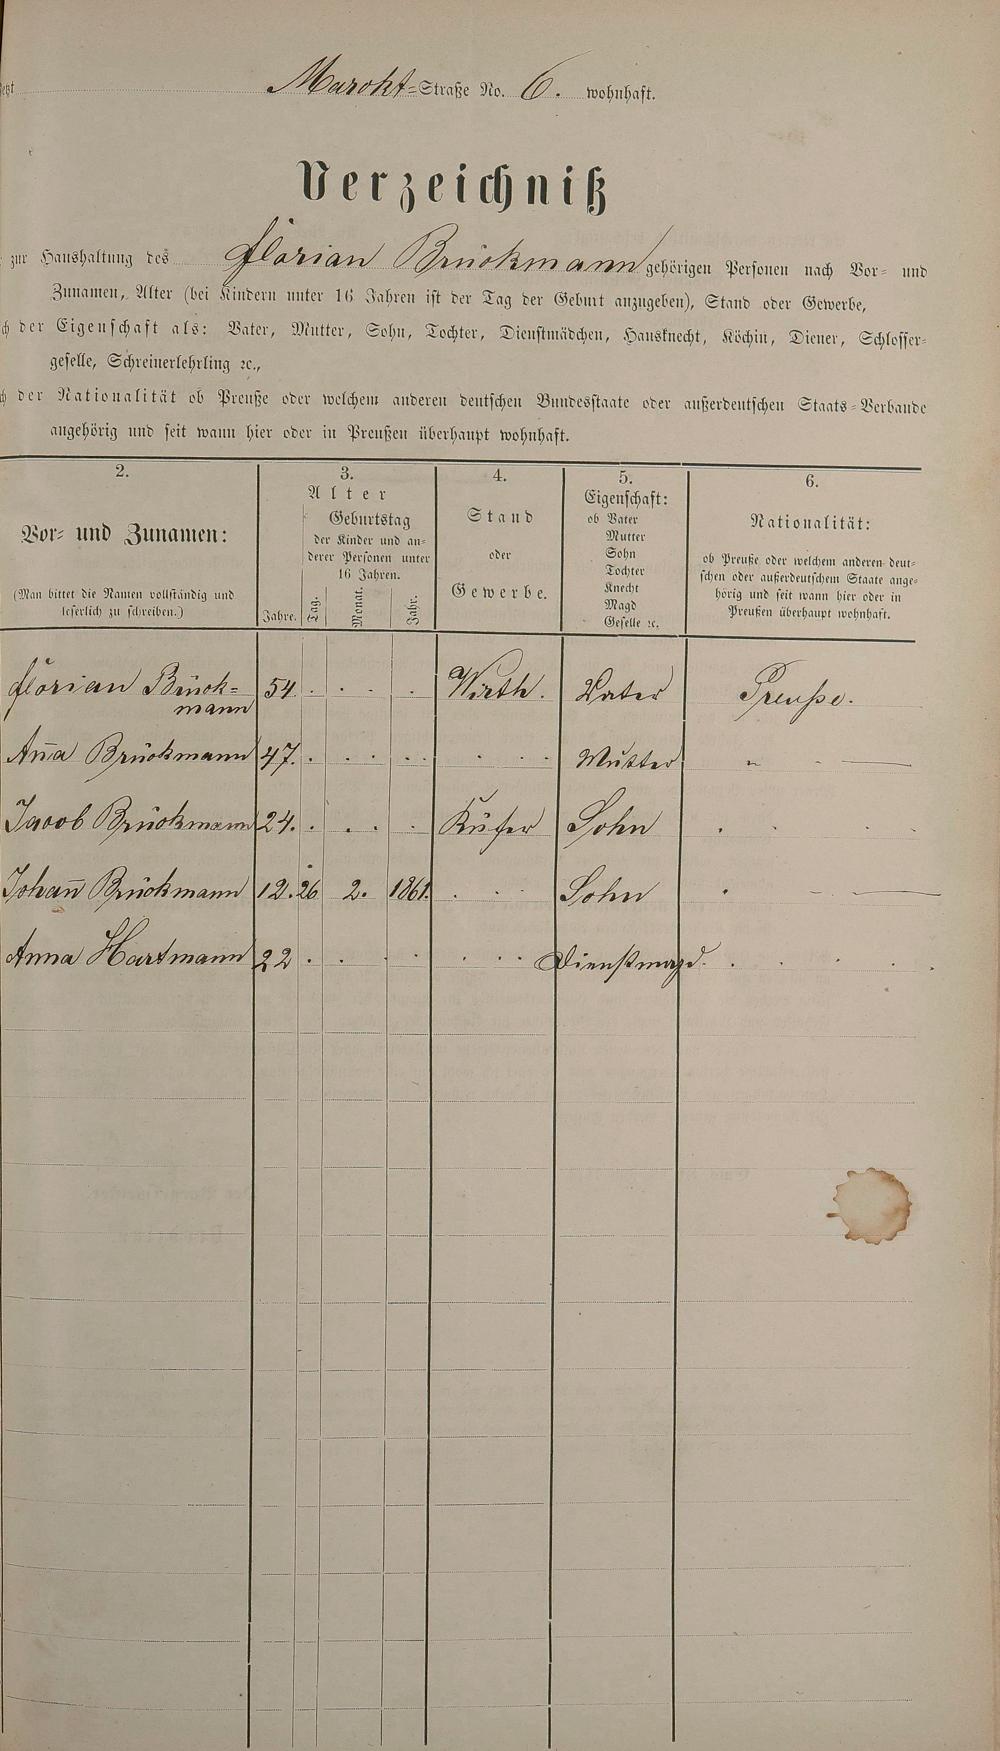 Marckt-Straße No. 6. wohnhaft.
Verzeichniß
zur Haushaltung des Florian Brückmann gehörigen Personen nach Vor- und
Zunamen, Alter (bei Kindern unter 16 Jahren ist der Tag der Geburt anzugeben), Stand oder Gewerbe,
der Eigenschaft als: Vater, Mutter, Sohn, Tochter, Dienstmädchen, Hausknecht, Köchin, Diener, Schlosser-
geselle, Schreinerlehrling ꝛc.,
der Nationalität ob Preuße oder welchem anderen deutschen Bundesstaate oder außerdeutschen Staats-Verbande
angehörig und seit wann hier oder in Preußen überhaupt wohnhaft.
2.
Vor- und Zunamen:
(Man bittet die Namen vollständig und
leserlich zu schreiben.)
3.
Alter
Geburtstag
der Kinder und an-
derer Personen unter
16 Jahren.
Jahre. Tag. Monat. Jahr.
4.
Stand
oder
Gewerbe.
5.
Eigenschaft:
ob Vater
Mutter
Sohn
Tochter
Knecht
Magd
Geselle ꝛc.
6.
Nationalität:
ob Preuße oder welchem anderen deut-
schen oder außerdeutschem Staate ange-
hörig und seit wann hier oder in
Preußen überhaupt wohnhaft.
Florian Brück- 54 . . . . Wirth. Vater Preuße.
mann
Añna Brückmann 47. . . . . . . . . Mutter " . —
Jacob Brückmann 24. . . . . Küfer Sohn . . . .
Johañ Brückmann 12. 26 2. 1861. . . Sohn . - —
Anna Hartmann 22 . . . . . . . Dienstmagd. . . . . .